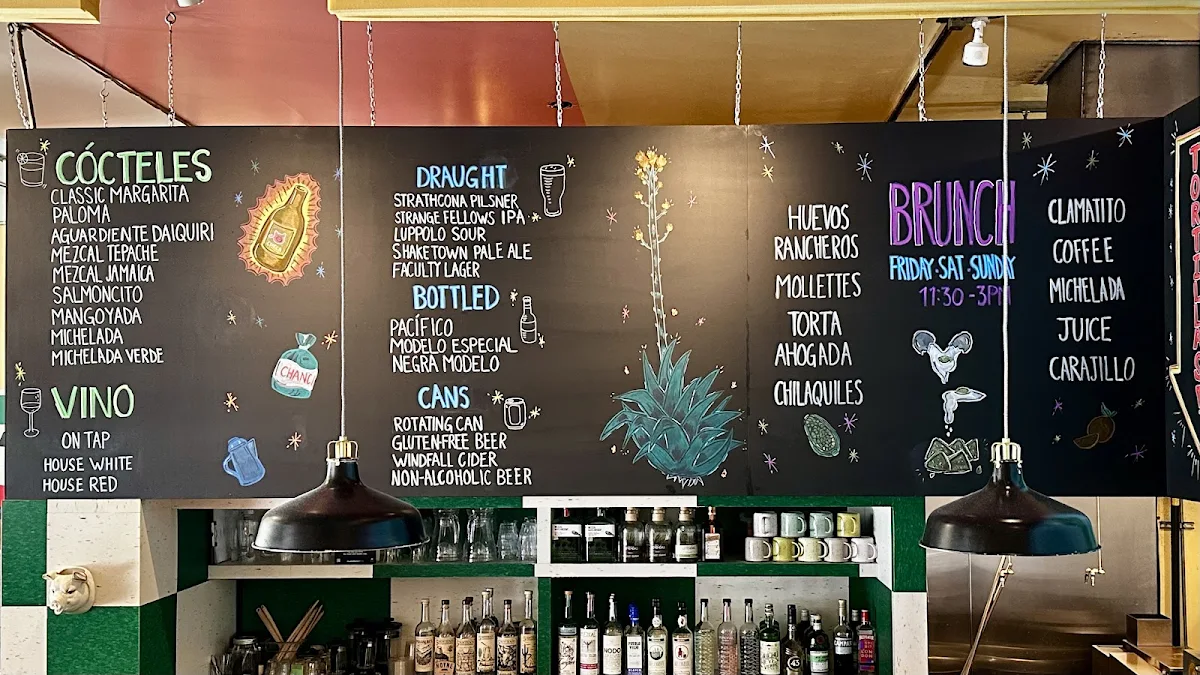 CÓCTELES
CLASSIC MARGARITA
PALOMA
AGUARDIENTE DAIQUIRI
MEZCAL TEPACHE
MEZCAL JAMAICA
SALMONCITO
MANGOYADA
MICHELADA
MICHELADA VERDE
VINO
ON TAP
HOUSE WHITE
HOUSE RED
CHANC
DRAUGHT
STRATHCONA PILSNER
STRANGE FELLOWS IPA
LUPPOLO SOUR
SHAKETOWN PALE ALE
FACULTY LAGER
BOTTLED
PACÍFICO
MODELO ESPECIAL
NEGRA MODELO
CANS
ROTATING CAN
GLUTEN-FREE BEER
WINDFALL CIDER
NON-ALCOHOLIC BEER
HUEVOS
RANCHEROS
MOLLETES
TORTA
AHOGADA
CHILAQUILES
BRUNCH
FRIDAY·SAT·SUNDAY
11:30-3PM
CLAMATITO
COFFEE
MICHELADA
JUICE
CARAJILLO
TORTILLAS
NODO
43